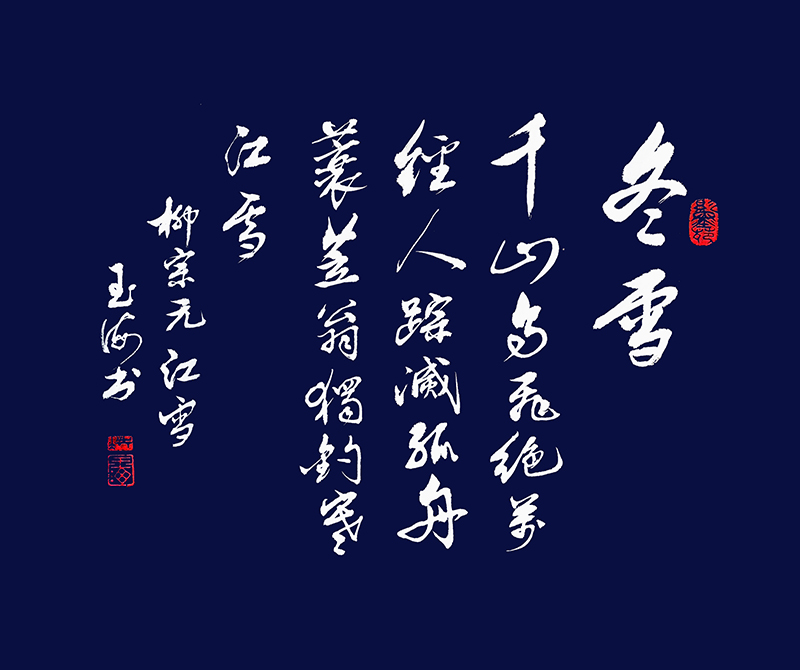 冬雪
千山鸟飛绝萬
徑人踪滅孤舟
蓑笠翁獨釣寒
江雪
柳宗元江雪
玉海书